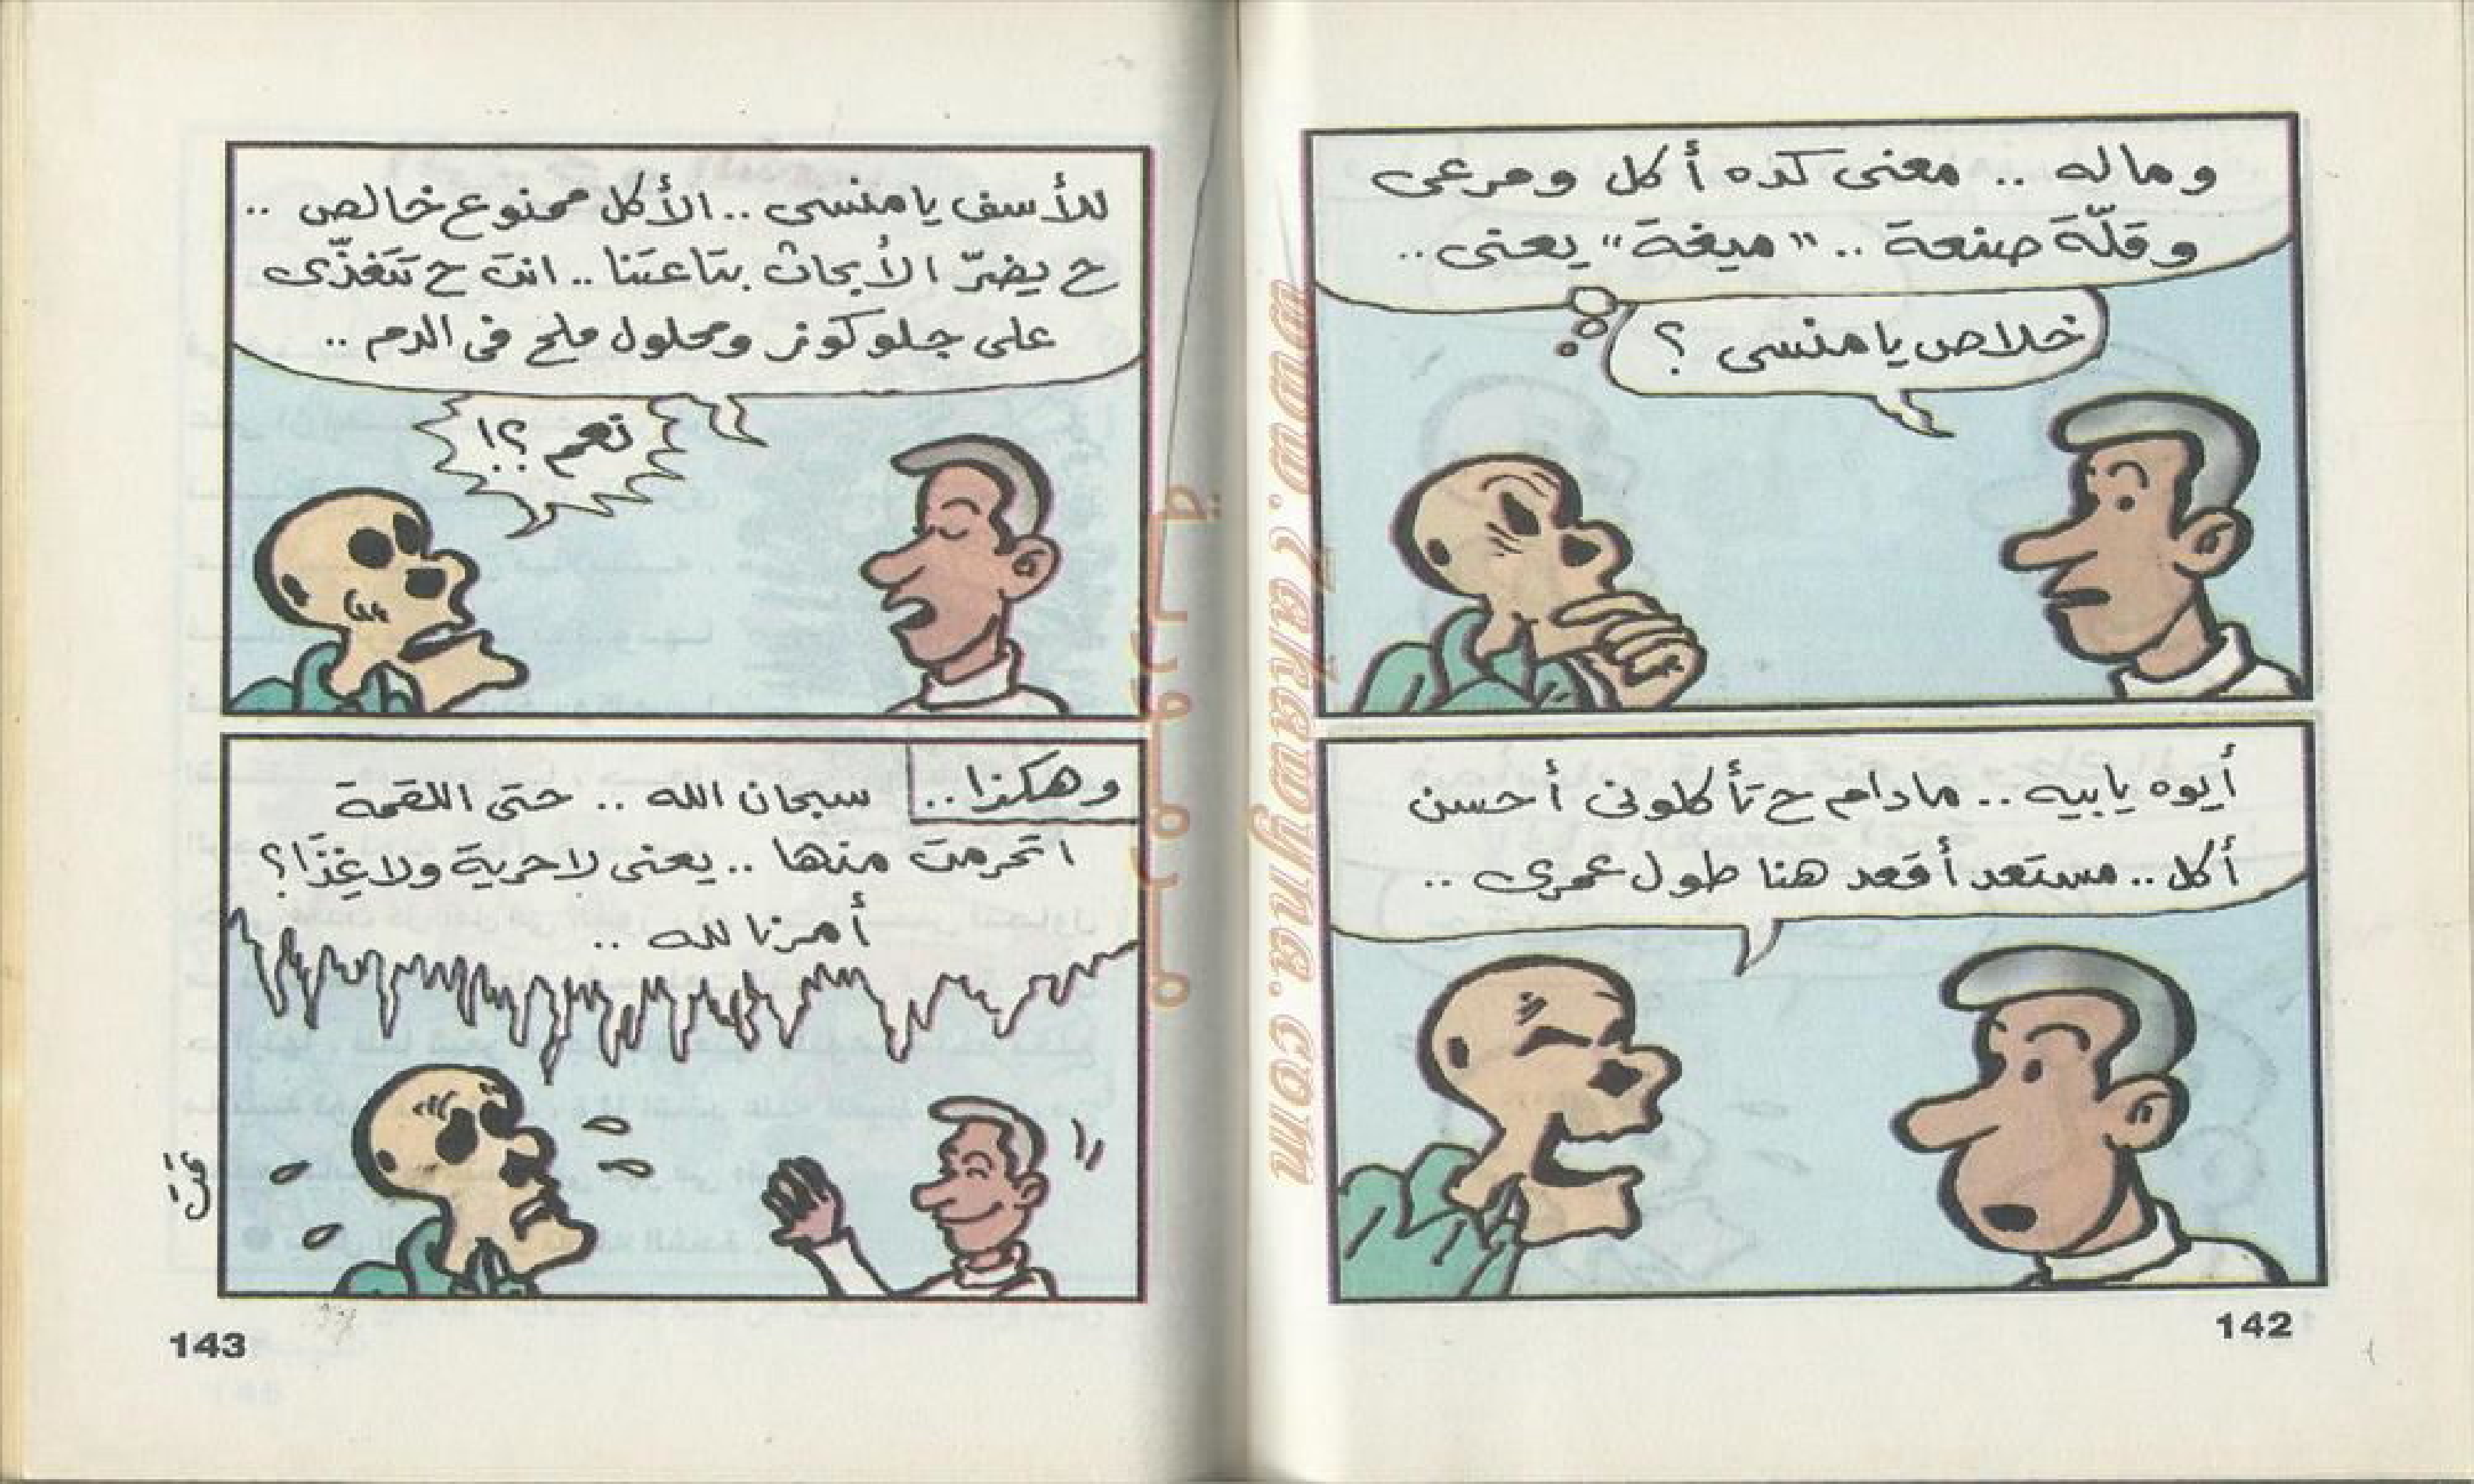 وماله .. معنى كده أكل ومرعى
وقلّة صنعة .. "ميغة" يعنى ..
خلاص يا منسى ؟
أيوه يا بيه .. مادام ح تأكلونى أحسن
أكل .. مستعد أقعد هنا طول عمرى ..
142
للأسف يا منسى .. الأكل ممنوع خالص ..
ح يضرّ الأبحاث بتاعتنا .. انت ح تتغذّى
على جلوكوز ومحلول ملح فى الدم ..
نعم ؟!
وهكذا ..
سبحان الله .. حتى اللقمة
اتحرمت منها .. يعنى لا حرية ولا غِذَا ؟
أمرنا لله ..
143
www.Zakawyna.com